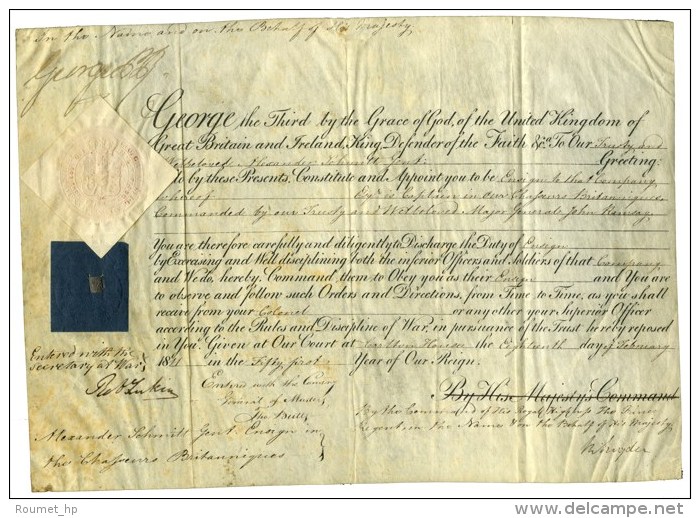 In the Name and on the Behalf of His Majesty,
George PR
George the Third by the Grace of God, of the United Kingdom of
Great Britain and Ireland, King, Defender of the Faith &ca To Our Trusty and
Wellbeloved Alexander Schmitt Gent. Greeting:
We do by these Presents, Constitute and Appoint you to be Ensign to that Company
whereof Esqr. is Captain in our Chasseurs Britanniques
Commanded by our Trusty and Welbeloved Major General John Ramsay,
You are therefore carefully and diligently to Discharge the Duty of Ensign
by Exercising and Well disciplining both the inferior Officers and Soldiers of that Company
and We do hereby Command them to Obey you as their Ensign and You are
to observe and follow such Orders and Directions, from Time to Time, as you shall
receive from your Colonel or any other your Superior Officer
according to the Rules and Discipline of War, in pursuance of the Trust hereby reposed
in You. Given at Our Court at Carlton House the Eighteenth day of February
1811 in the Fifty first Year of Our Reign.
Entered with the
Secretary at War
Entered with the Commy
General of Musters
By His Majesty's Command
By the Command of His Royal Highness The Prince
Regent in the Name & on the Behalf of His Majesty,
R Ryder
Alexander Schmitt Gent. Ensign in
the Chasseurs Britanniques
Roumet_hp
delcampe.net